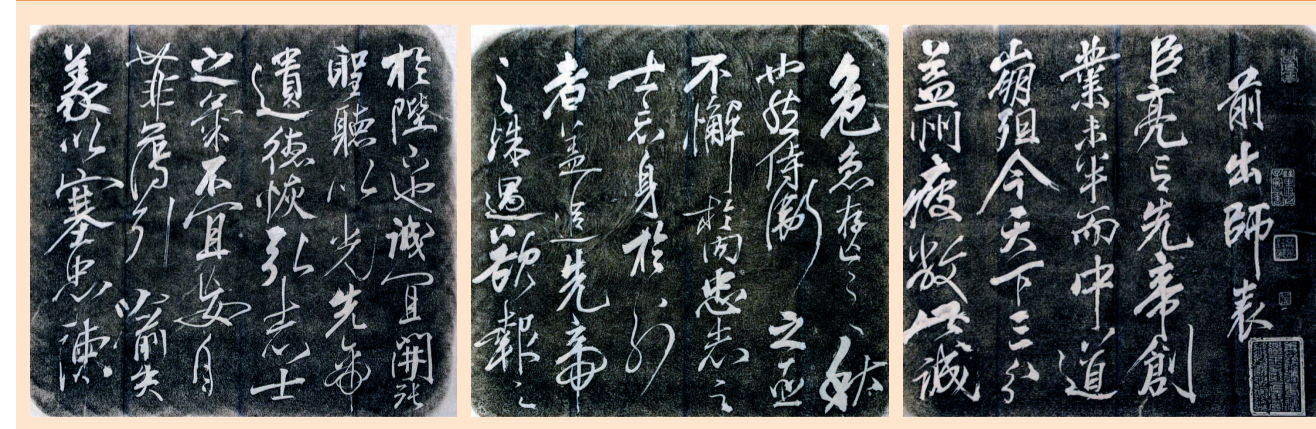 前出師表
臣亮言先帝創
業未半而中道
崩殂今天下三分
益州疲敝此誠
危急存亡之秋
也然侍衛之臣
不懈於内忠志之
士忘身於外
者蓋追先帝
之殊遇欲報之
於陛下也誠宜開張
聖聽以光先帝
遺德恢弘志士
之氣不宜妄自
菲薄引喻失
義以塞忠諫